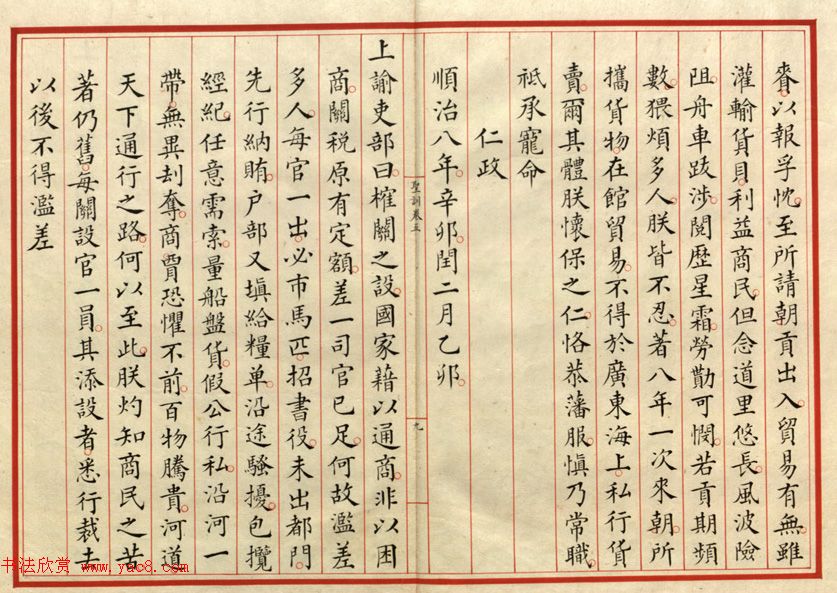 賚以報孚忱至所請朝貢出入貿易有無雖
灌輸貨貝利益商民但念道里悠長風波險
阻舟車跋涉閱歷星霜勞勩可憫若貢期頻
數猥煩多人朕皆不忍著八年一次來朝所
攜貨物在館貿易不得於廣東海上私行貨
賣爾其體朕懷保之仁恪恭藩服慎乃常職
祇承寵命
仁政
順治八年辛卯閏二月乙卯
聖訓卷五
九
上諭吏部曰榷關之設國家藉以通商非以困
商關稅原有定額差一司官已足何故濫差
多人每官一出必市馬匹招書役未出都門
先行納賄戶部又填給糧單沿途騷擾包攬
經紀任意需索量船盤貨假公行私沿河一
帶無異刦奪商賈恐懼不前百物騰貴河道
天下通行之路何以至此朕灼知商民之苦
著仍舊每關設官一員其添設者悉行裁去
以後不得濫差
书法欣赏 www.yac8.com